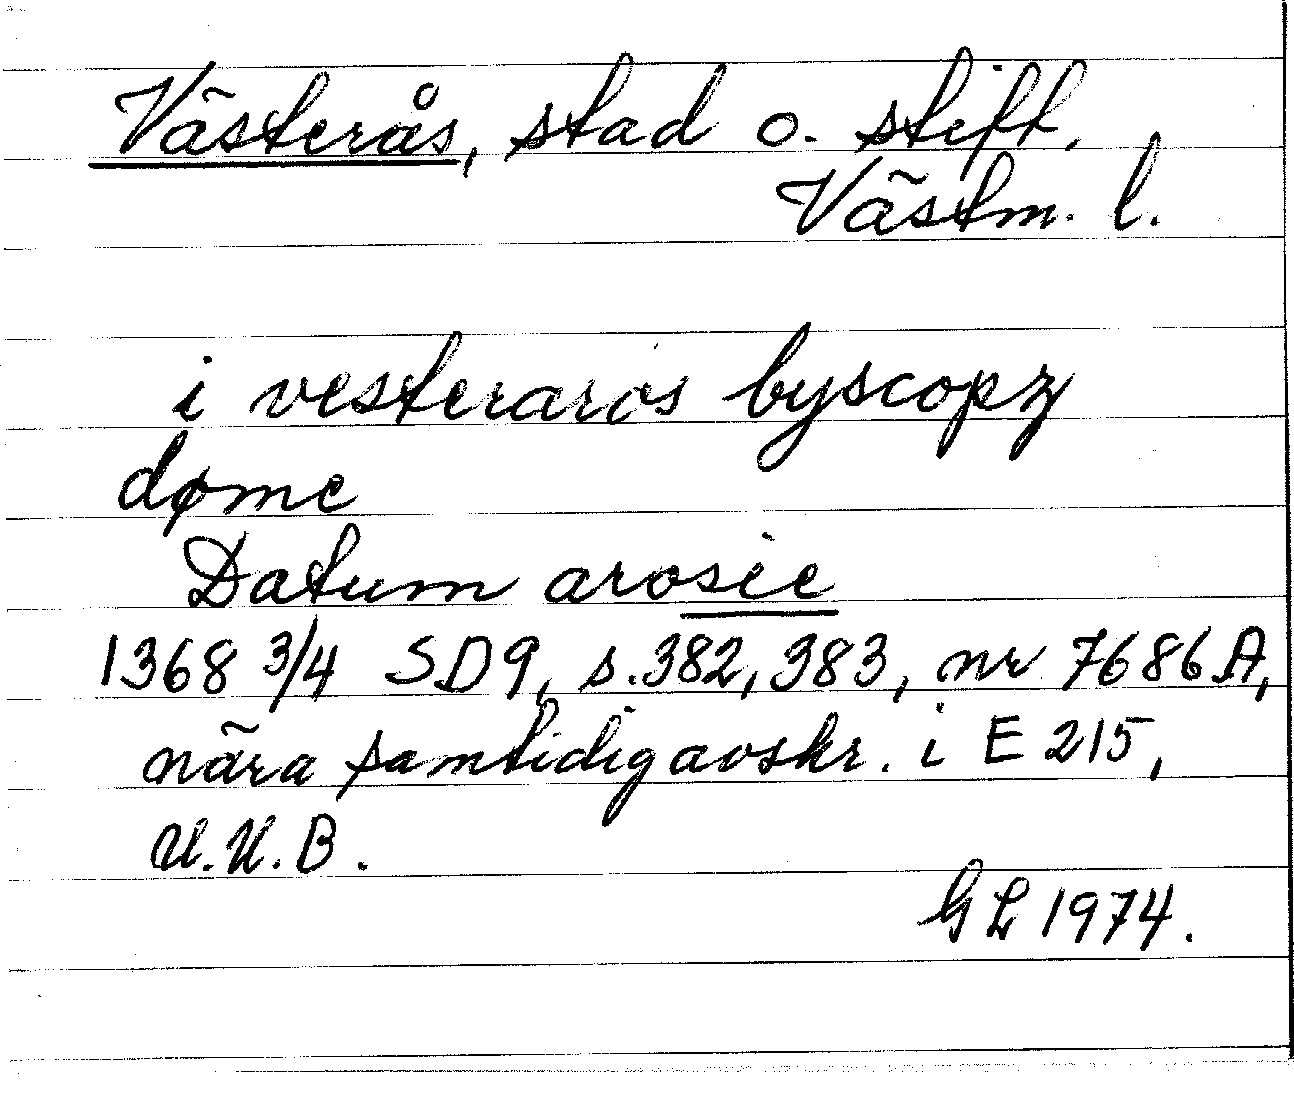 Västerås, stad o. stift.
Västm. l.
i vesteraros byscopz
dømе
Datum arosie
1368 3/4 SD9, s.382, 383, nr 7686A,
nära samtidig avskr. i E 215,
U.U.B.
GL 1974.